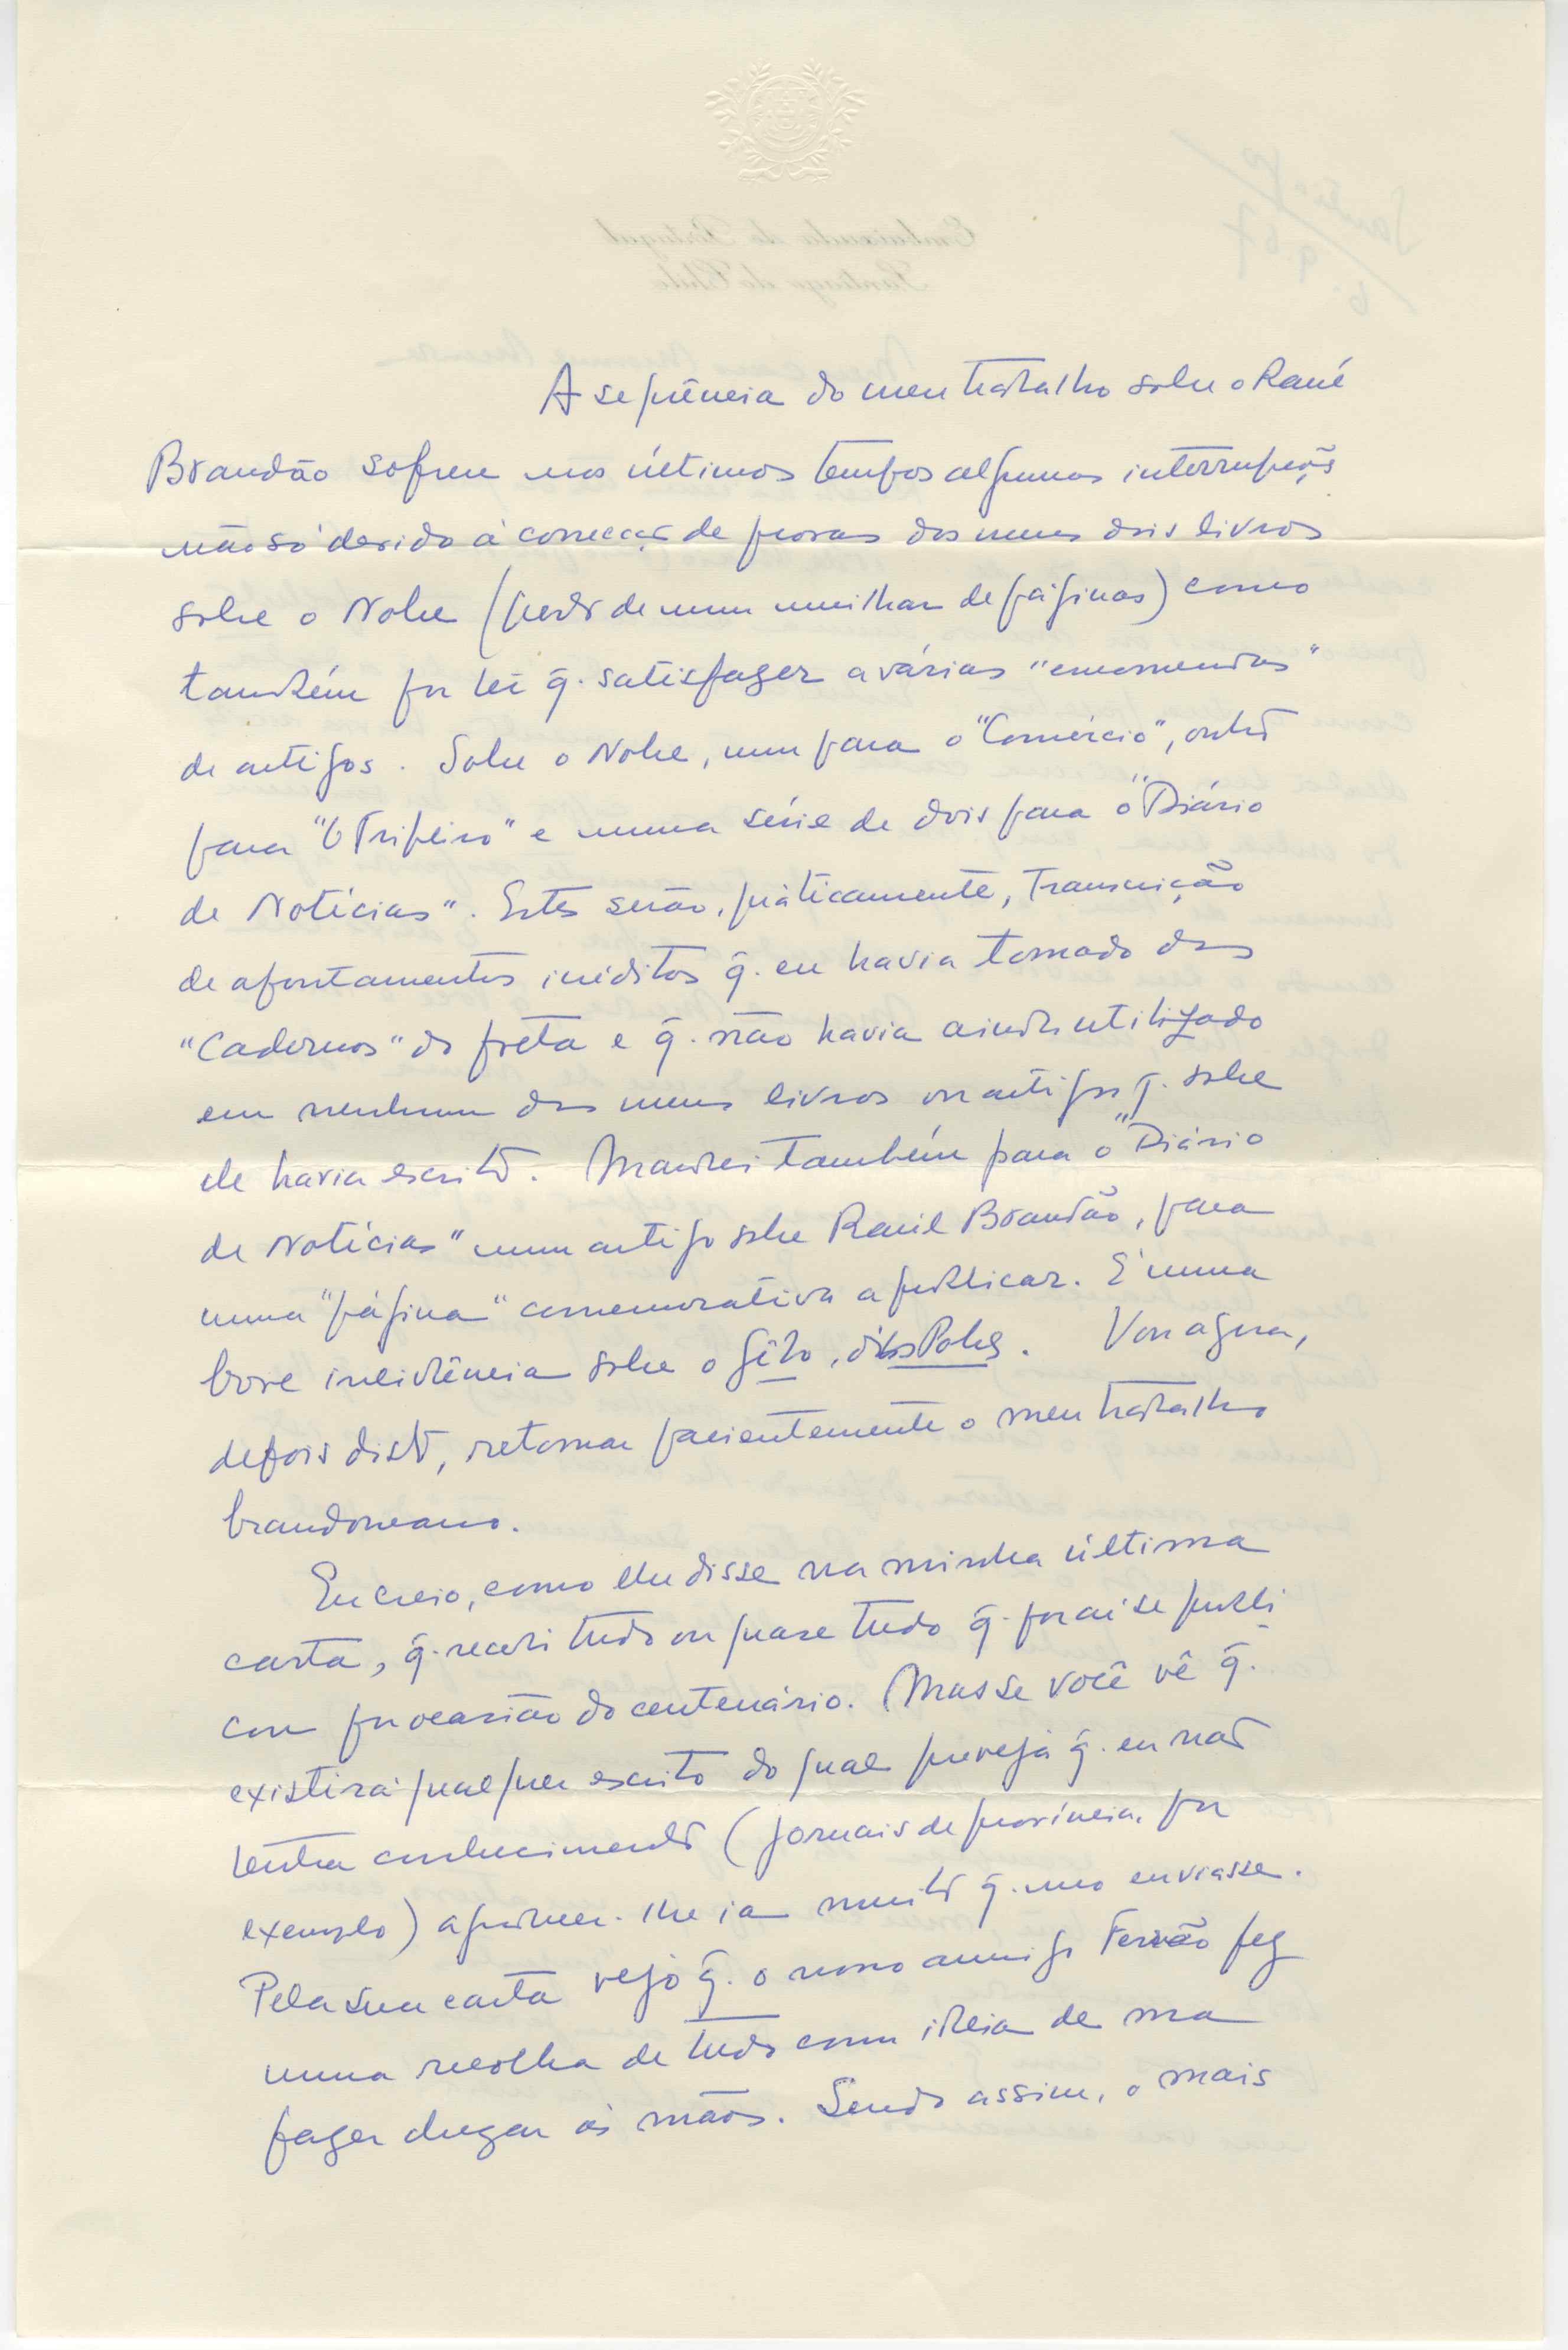 A sequência do meu trabalho sobre o Raul
Brandão sofreu nos últimos tempos algumas interrupções
não só devido à correcção de provas dos meus dois livros
sobre o Nobre (perto de um milhar de páginas) como
também por ter q. satisfazer a várias "encomendas"
de artigos. Sobre o Nobre, um para o "Comércio", outro
para "O Tripeiro" e numa série de dois para o "Diário
de Notícias". Estes serão, pràticamente, transcrição
de apontamentos inéditos q. eu havia tomado dos
"Cadernos" do poeta e q. não havia ainda utilizado
em nenhum dos meus livros ou artigos q. sobre
ele havia escrito. Mandei também para o "Diário
de Notícias" um artigo sobre Raul Brandão, para
uma "página" comemorativa a publicar. É uma
breve incidência sobre o Gêbo, dos Pobres. Vou agora,
depois disto, retomar pacientemente o meu trabalho
brandoneano.
Eu creio, como lhe disse na minha última
carta, q. recebi tudo ou quase tudo q. por aí se publi
cou por ocasião do centenário. Mas se você vê q.
existirá qualquer escrito do qual preveja q. eu não
tenha conhecimento (jornais de província, por
exemplo) agradecer-lhe-ia muito q. mo enviasse.
Pela sua carta vejo q. o nosso amigo Ferrão fez
uma recolha de tudo com ideia de ma
fazer chegar às mãos. Sendo assim, o mais